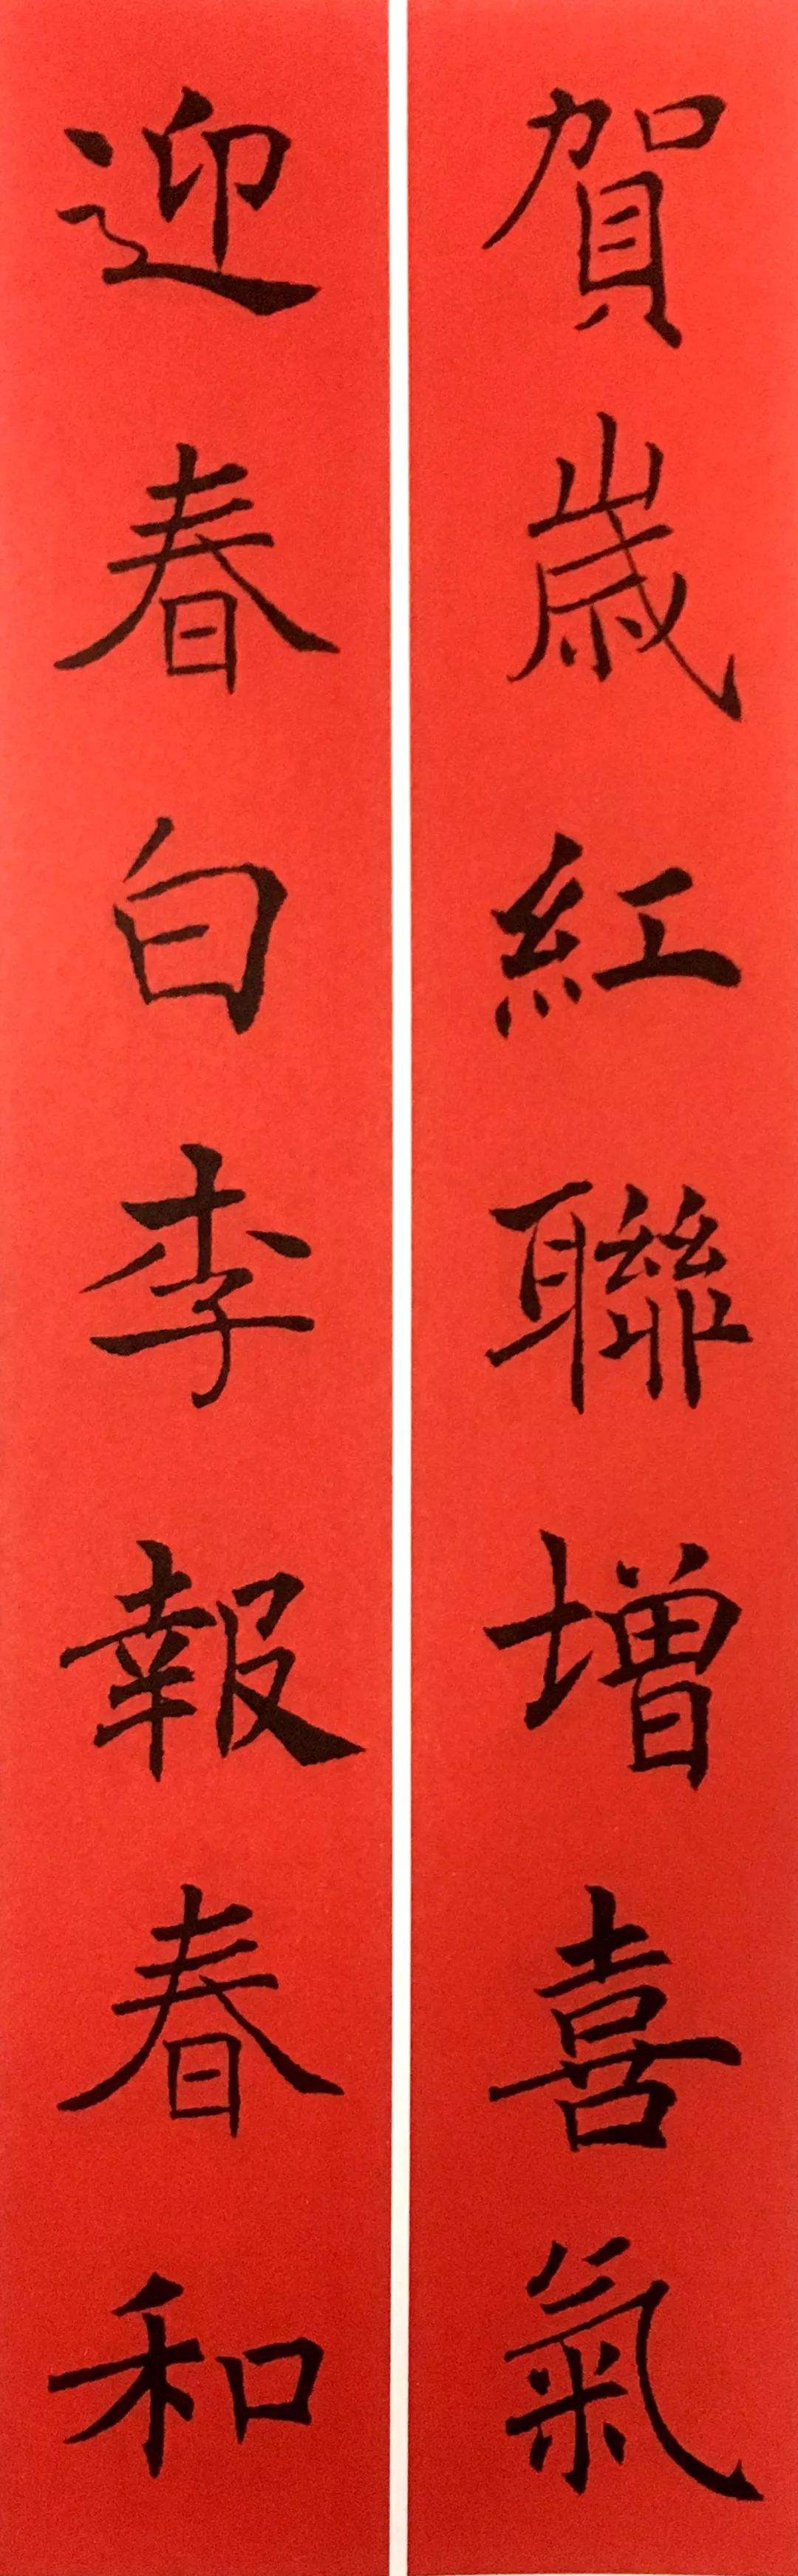 賀歲紅聯增喜氣
迎春白李報春和